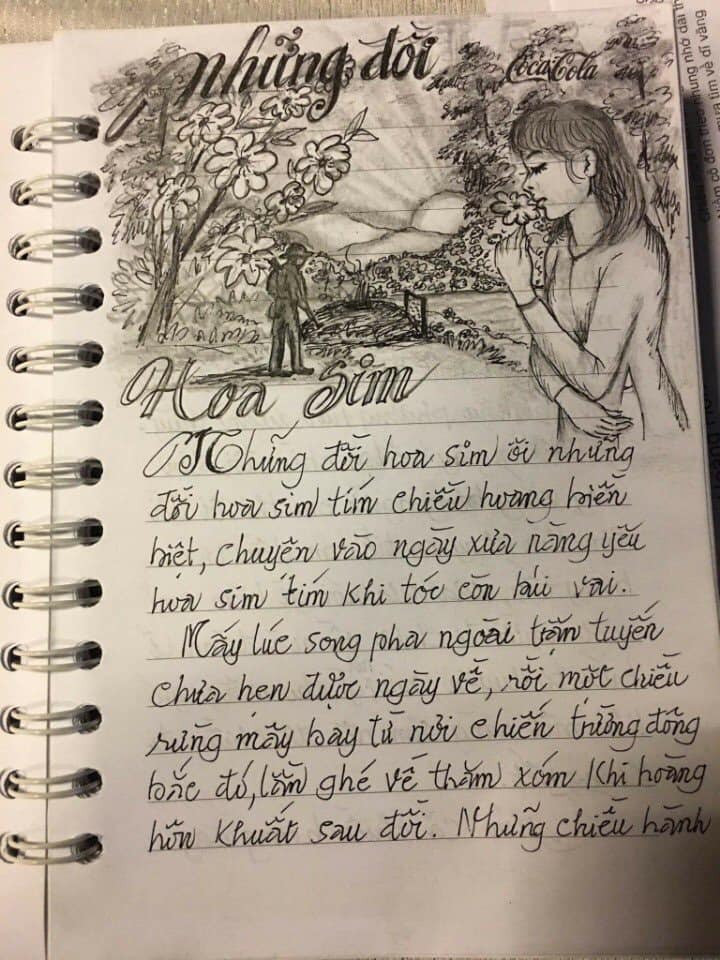 Những đồi
CocaCola
Hoa Sim
Những đồi hoa sim ôi những
đồi hoa sim tím chiều hoang biền
biệt, chuyện vào ngày xưa nàng yêu
hoa sim tím khi tóc còn búi vai.
Mấy lúc song pha ngoài trận tuyến
chưa hẹn được ngày về, rồi một chiều
rừng mây bay từ nơi chiến trường đông
bắc đó, lần ghé về thăm xóm khi hoàng
hôn khuất sau đồi. Những chiều hành
tìm về dĩ vãng
nhung nhớ dài